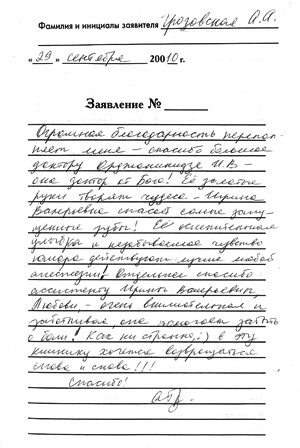 Фамилия и инициалы заявителя Грозовская А.А.
«29» сентября 20010 г.
Заявление №
Огромная благодарность перепол-
няет меня – спасибо большое
доктору Орджоникидзе И.В –
она доктор от Бога! Её золотые
руки творят чудеса – Ирина
Валерьевна спасает самые запу-
щенные зубы! Её ослепительная
улыбка и незабываемое чувство
юмора действуют лучше любой
анестезии! Отдельное спасибо
ассистенту Ирины Валерьевны,
Любови – очень внимательная и
заботливая, она помогает забыть
о боли! Как ни странно, :) в эту
клинику хочется возвращаться
снова и снова!!!
Спасибо!